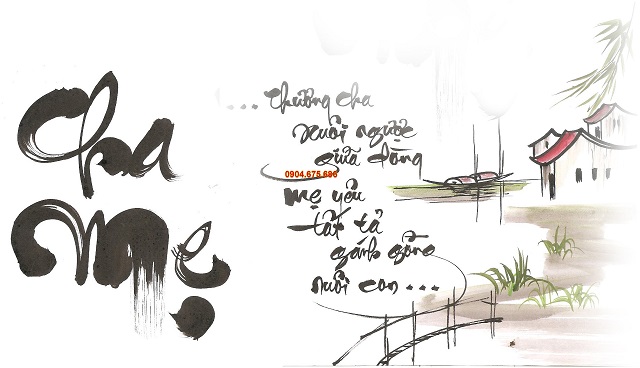 Cha
Mẹ
... thương cha
xuôi ngược
giữa dòng
0904.675.686
mẹ yêu
tất tả
gánh gồng
nuôi con ...